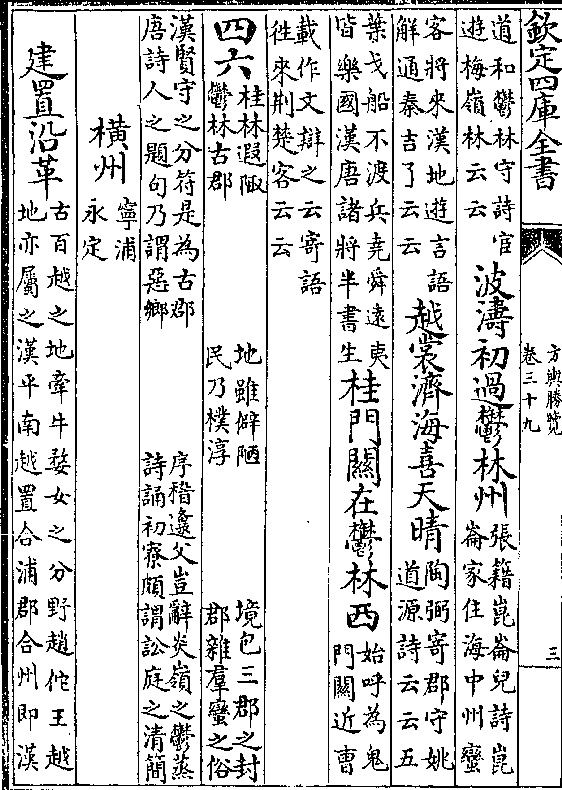 欽定四庫全書
方輿勝覽
卷三十九
三
道和鬱林守詩官
遊梅嶺林云云
波濤初過鬱林州
張籍崑崙兒詩崑
崙家住海中州蠻
客將來漢地遊言語
解通秦吉了云云
越裳濟海喜天晴
陶弼寄郡守姚
道源詩云云五
葉戈船不渡兵堯舜遠夷
皆樂國漢唐諸將半書生
桂門關在鬱林西
始呼為鬼
門關近曺
載作文辯之云寄語
徃來荆楚客云云
四六
桂林遐陬
鬱林古郡
地雖僻陋
民乃樸淳
境包三郡之封
郡雜羣蠻之俗
漢賢守之分符是為古郡
唐詩人之題句乃謂惡鄉
序稽邃父豈辭炎嶺之鬱蒸
詩誦初寮頗謂訟庭之清簡
橫州
寧浦
永定
建置沿革
古百越之地牽牛婺女之分野趙佗王越
地亦屬之漢平南越置合浦郡合州即漢